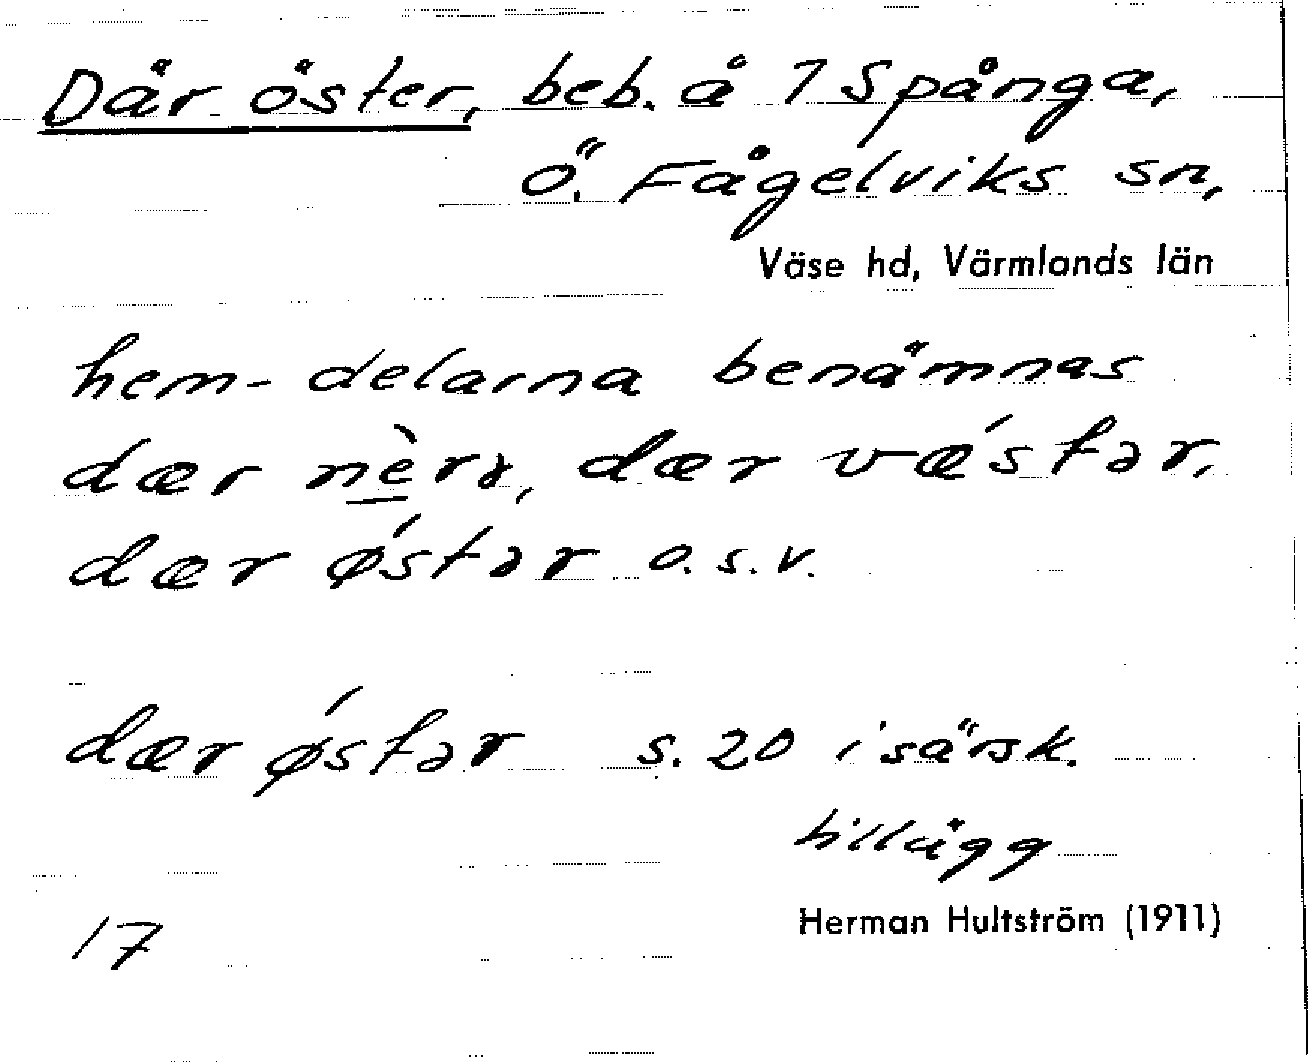 Där öster, beb. å 7 Spånga,
Ö. Fågelviks sn,
Väse hd, Värmlands län
hem-delarna benämnas
dær nèrə, dær vǽstər,
dær ǿstər o.s.v.
dær ǿstər s. 20 i särsk.
tillägg
Herman Hultström (1911)
17